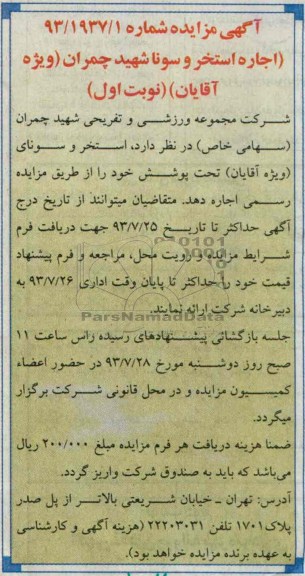 آگهی مزایده شماره ۹۳/۱۹۳۷/۱
(اجاره استخر و سونا شهید چمران (ویژه
آقایان) (نوبت اول)
شرکت مجموعه ورزشی و تفریحی شهید چمران
(سهامی خاص) در نظر دارد، استخر و سونای
(ویژه آقایان) تحت پوشش خود را از طریق مزایده
رسمی اجاره دهد. متقاضیان میتوانند از تاریخ درج
آگهی حداکثر تا تاریخ ۹۳/۷/۲۵ جهت دریافت فرم
شرایط مزایده و رویت محل، مراجعه و فرم پیشنهاد
قیمت خود را حداکثر تا پایان وقت اداری ۹۳/۷/۲۶ به
دبیرخانه شرکت ارائه نمایند.
ParsNamadData
جلسه بازگشائی پیشنهادهای رسیده راس ساعت ۱۱
صبح روز دوشنبه مورخ ۹۳/۷/۲۸ در حضور اعضاء
کمیسیون مزایده و در محل قانونی شرکت برگزار
میگردد.
ضمنا هزینه دریافت هر فرم مزایده مبلغ ۲۰۰/۰۰۰ ریال
می‌باشد که باید به صندوق شرکت واریز گردد.
آدرس: تهران ـ خیابان شریعتی بالاتر از پل صدر
پلاک۱۷۰۱ تلفن ۲۲۲۰۳۰۳۱ (هزینه آگهی و کارشناسی
به عهده برنده مزایده خواهد بود).